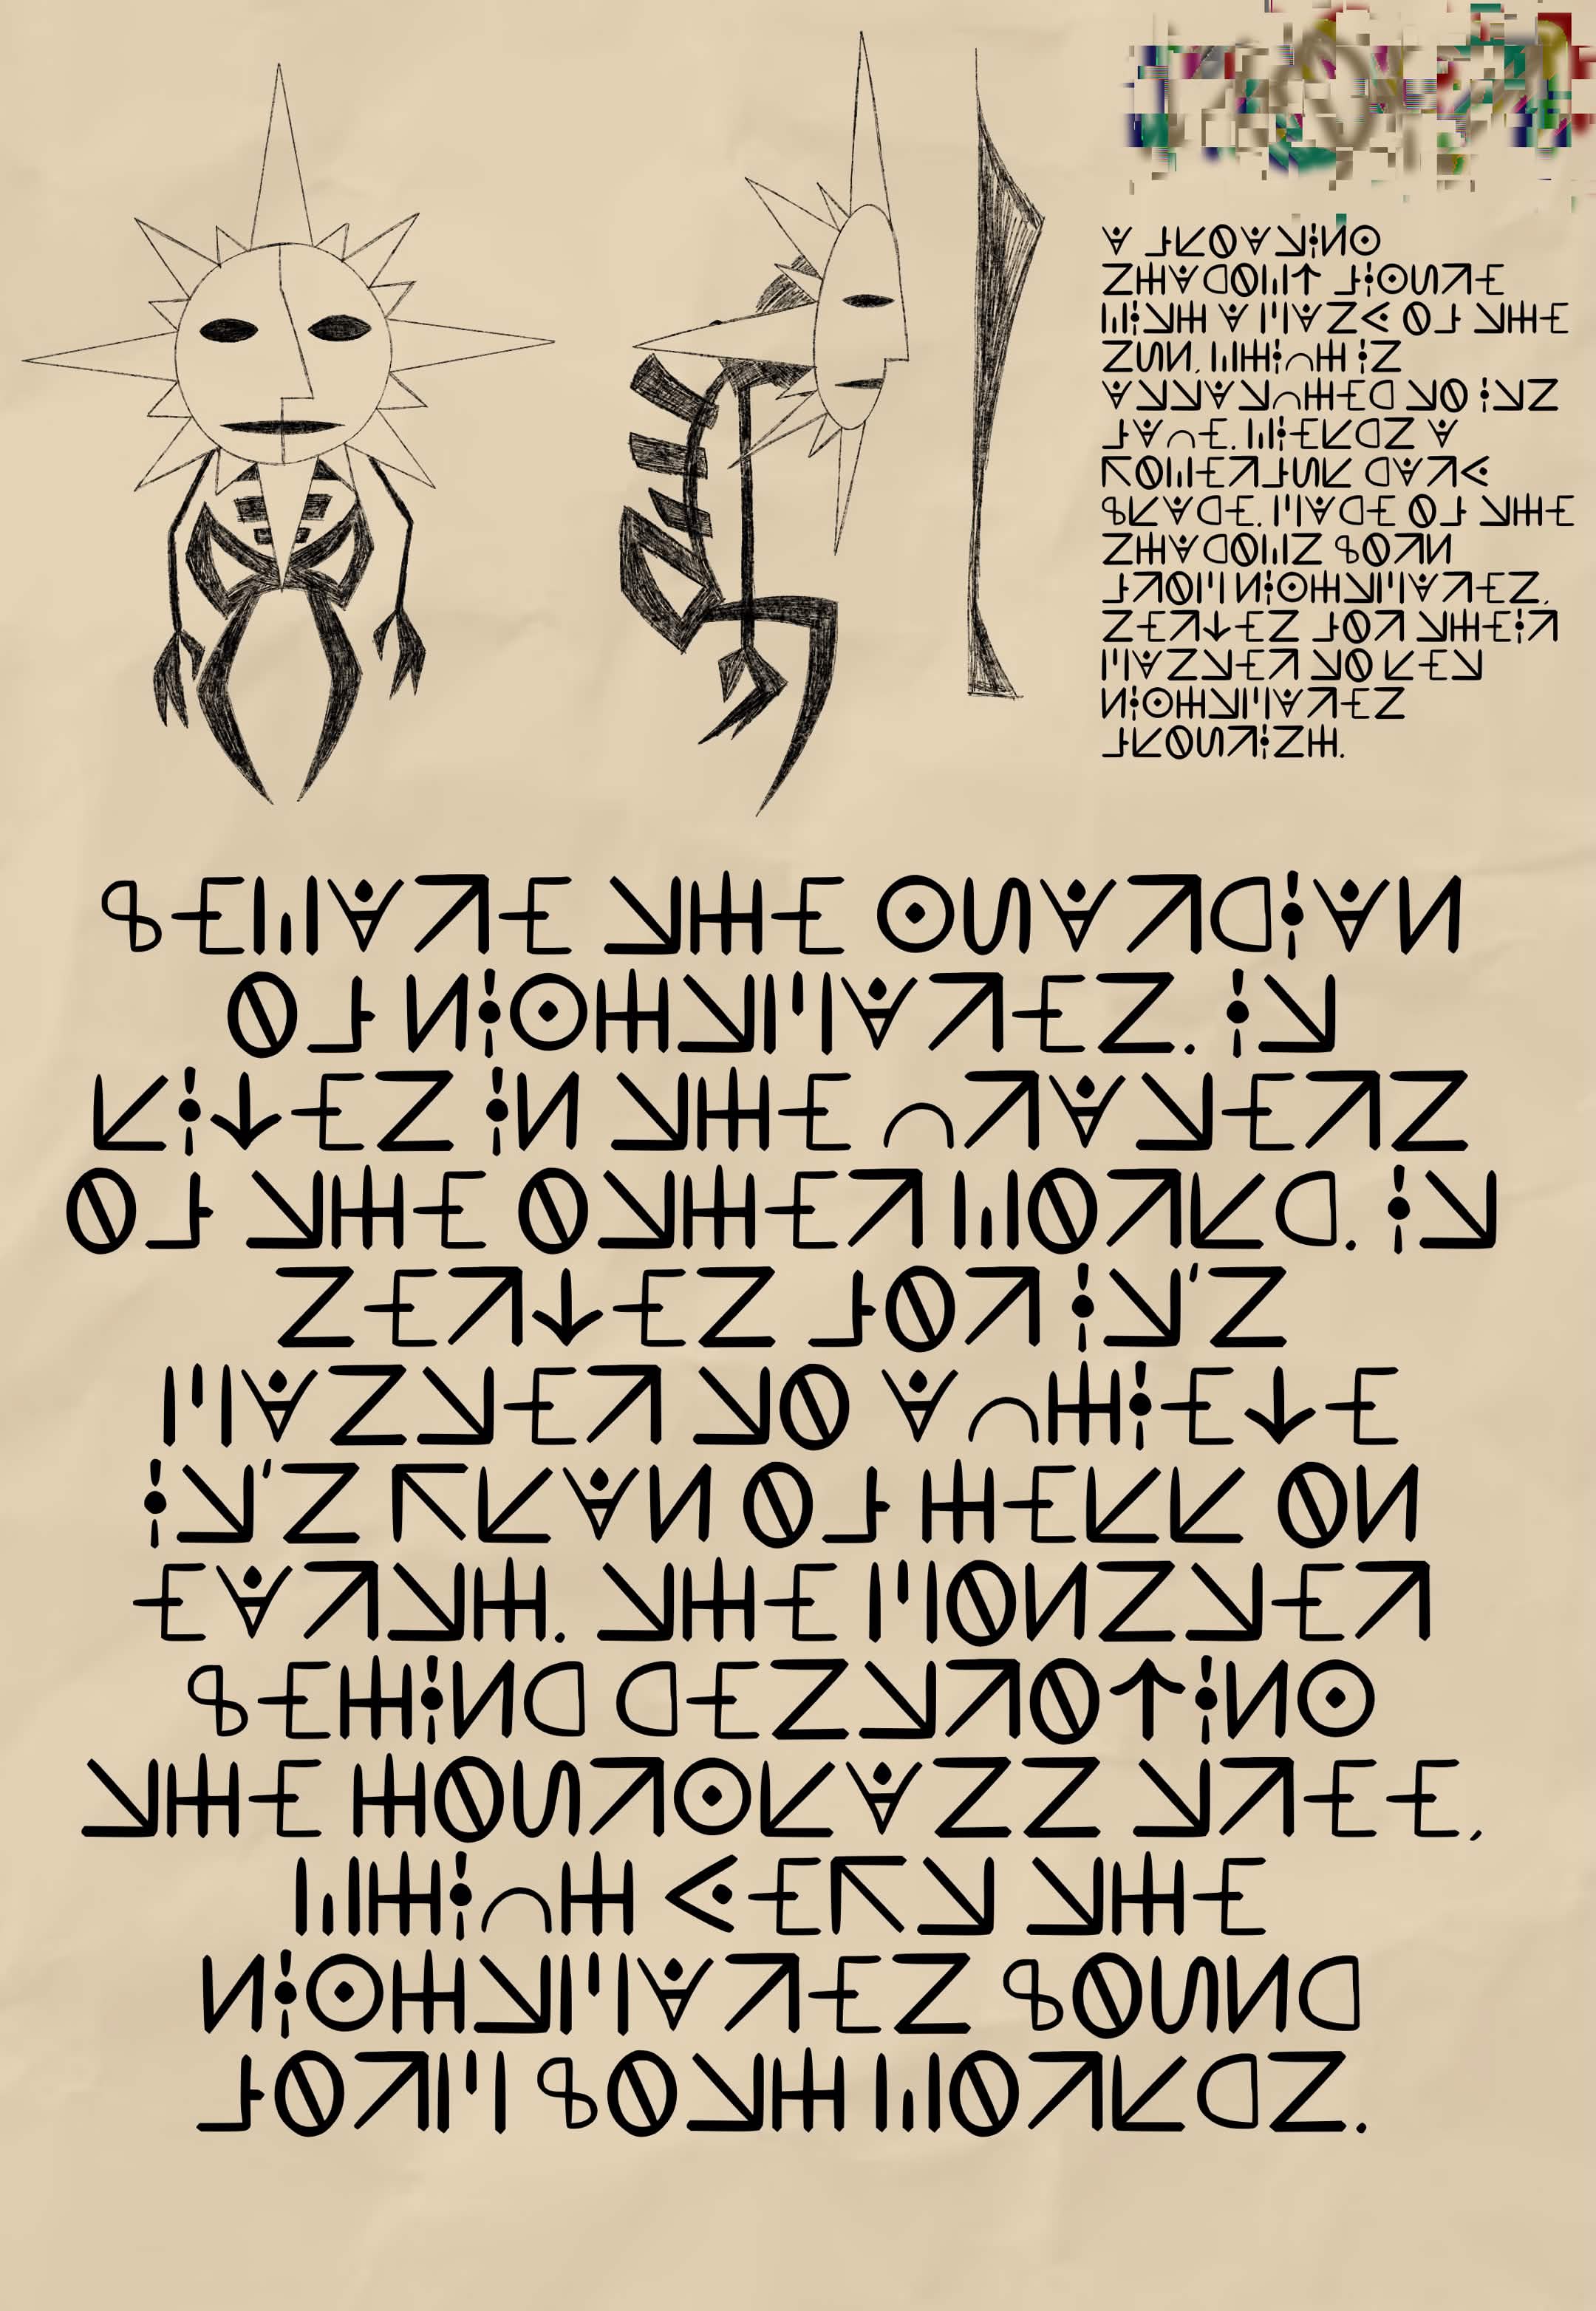 A FLOATING
SHADOWY FIGURE
WITH A MASK OF THE
SUN, WHICH IS
ATTATCHED TO ITS
FACE. WIELDS A
POWERFUL DARK
BLADE. MADE OF THE
SHADOWS BORN
FROM NIGHTMARES,
SERVES FOR THEIR
MASTER TO LET
NIGHTMARES
FLOURISH.
BEWARE THE GUARDIAN
OF NIGHTMARES. IT
LIVES IN THE CRATERS
OF THE OTHER WORLD. IT
SERVES FOR IT'S
MASTER TO ACHIEVE
IT'S PLAN OF HELL ON
EARTH. THE MONSTER
BEHIND DESTROYING
THE HOURGLASS TREE,
WHICH KEPT THE
NIGHTMARES BOUND
FORM BOTH WORLDS.